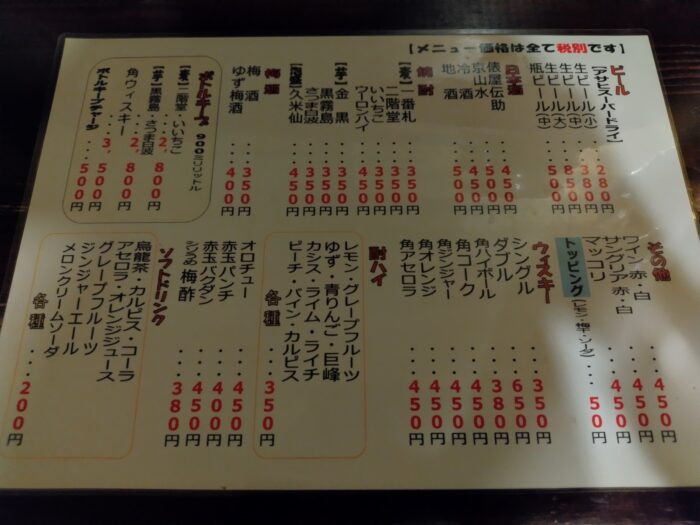 【メニュー価格は全て税別です】
ビール
【アサヒスーパードライ】
生ビール(小)・・・280円
生ビール(中)・・・380円
生ビール(大)・・・850円
瓶ビール(中)・・・550円
日本酒
俵屋伝助・・・450円
京山水・・・500円
冷酒
地酒・・・500円
焼酎
【麦】一番札・・・350円
二階堂・・・400円
いいちこ・・・350円
ウーロンハイ
【芋】金・黒・・・350円
黒霧島・・・350円
さつま白波・・・350円
【泡盛】久米仙・・・450円
梅酒
梅酒・・・350円
ゆず梅酒・・・400円
ボトルキープ 900ミリリットル
【麦】二階堂・いいちこ
【芋】黒霧島・さつま白波・・2,800円
角ウィスキー・・・2,800円
・・・3,500円
ボトルキープチャージ・・・500円
その他
ワイン赤・白・・・450円
サングリア赤・白・・・450円
マッコリ・・・450円
トッピング(レモン・梅干・ソーダ)・・・50円
ウィスキー
シングル・・・350円
ダブル・・・650円
角ハイボール・・・380円
角コーク・・・450円
角ジンジャー・・・450円
角オレンジ・・・450円
角アセロラ・・・450円
酎ハイ
レモン・グレープフルーツ
ゆず・青りんご・巨峰
カシス・ライム・ライチ
ピーチ・パイン・カルピス
各種・・・350円
オロチュー・・・450円
赤玉パンチ・・・400円
赤玉パンダン・・・450円
シソうめ梅酢・・・380円
ソフトドリンク
烏龍茶・カルピス・コーラ
アセロラ・オレンジジュース
グレープフルーツ
ジンジャーエール
メロンクリームソーダ
各種・・・200円